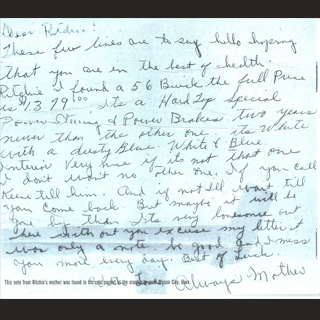 Dear Ritchie:
These few lines are to say hello hopeing
that you are in the best of health.
Ritchie I found a 56 Buick the full Price
is $1379.00 Its a Hard Top Special
Power Stering & Power Brakes two years
newer than the other one its White
with a dusty Blue. White & Blue.
Interior Very nice if its not that one
I don't won't no other one. If you call
Keene tell him. And if not I'll wait till
you come back. But maybe it will be
too by than Its very lonesome out
here with out you excuse my letter it
was only a note. be good and I miss
you more every day. Best of luck.
Always Mother
This note from Ritchie's mother was found in the